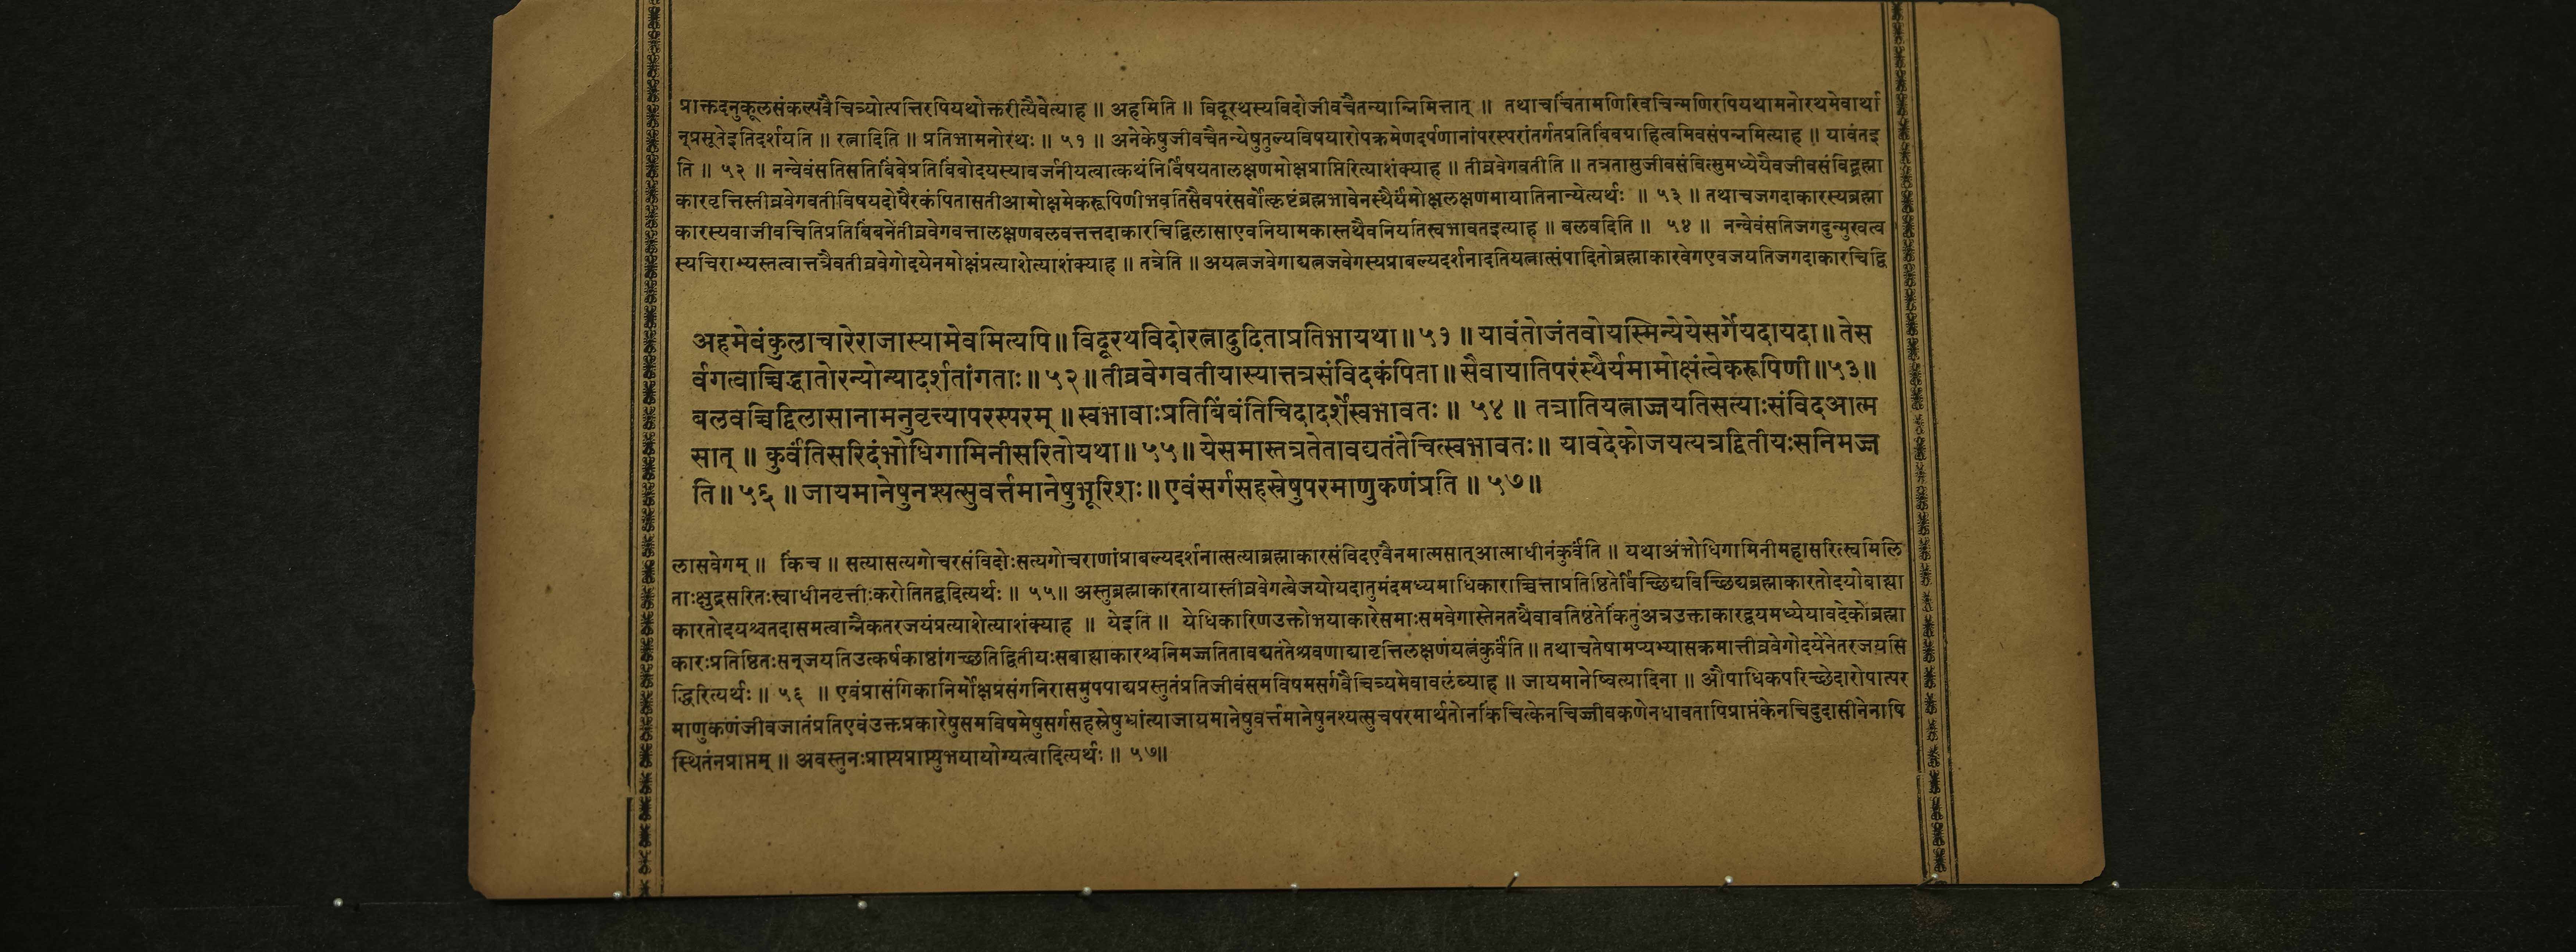 प्राक्तदनुकूलसंकल्पवैचित्र्योत्पत्तिरपियथोक्तरीत्यैवेत्याह ॥ अहमिति ॥ विदूरथस्यविदोजीवचैतन्यान्निमित्तात् ॥ तथाचचिंतामणिरिवचिन्मणिरपियथामनोरथमेवार्था
न्प्रसूतेइतिदर्शयति ॥ रत्नादिति ॥ प्रतिभामनोरथः ॥ ५१ ॥ अनेकेषुजीवचैतन्येषुतुल्यविषयारोपक्रमेणदर्पणानांपरस्परांतर्गतप्रतिबिंबग्राहित्वमिवसंपन्नमित्याह ॥ यावंतइ
ति ॥ ५२ ॥ नन्वेवंसतिसतिबिंबेप्रतिबिंबोदयस्यावर्जनीयत्वात्कथंनिर्विषयतालक्षणमोक्षप्राप्तिरित्याशंक्याह ॥ तीव्रवेगवतीति ॥ तत्रतासुजीवसंवित्सुमध्येयैवजीवसंविद्ब्रह्मा
कारवृत्तिस्तीव्रवेगवतीविषयदोषैरकंपितासतीआमोक्षमेकरूपिणीभवतिसैवपरंसर्वोत्कृष्टंब्रह्मभावेनस्थैर्यंमोक्षलक्षणमायातिनान्येत्यर्थः ॥ ५३ ॥ तथाचजगदाकारस्यब्रह्मा
कारस्यवाजीवचितिप्रतिबिंबनेतीव्रवेगवत्तालक्षणबलवत्तत्तदाकारचिद्विलासाएवनियामकास्तथैवनियतिस्वभावतइत्याह ॥ बलवदिति ॥ ५४ ॥ नन्वेवंसतिजगदुन्मुखत्व
स्यचिराभ्यस्तत्वात्तत्रैवतीव्रवेगोदयेनमोक्षंप्रत्याशेत्याशंक्याह ॥ तत्रेति ॥ अयत्नजवेगाद्यत्नजवेगस्यप्राबल्यदर्शनादतियत्नात्संपादितोब्रह्माकारवेगएवजयतिजगदाकारचिद्वि
अहमेवंकुलाचारेराजास्यामेवमित्यपि॥ विदूरथविदोरत्नादुदिताप्रतिभायथा॥५१॥ यावंतोजंतवोयस्मिन्येयेसर्गेयदायदा॥ तेस
र्वगत्वाच्चिद्धातोरन्योन्यादर्शतांगताः॥५२॥तीव्रवेगवतीयास्यात्तत्रसंविदकंपिता॥सैवायातिपरंस्थैर्यमामोक्षंत्वेकरूपिणी॥५३॥
बलवच्चिद्विलासानामनुवृत्त्यापरस्परम् ॥स्वभावाःप्रतिबिंबंतिचिदादर्शेस्वभावतः॥ ५४ ॥ तत्रातियत्नाज्जयतिसत्याःसंविदआत्म
सात् ॥ कुर्वंतिसरिदंभोधिगामिनीसरितोयथा॥५५॥येसमास्तत्रतेतावद्यतंतेचित्स्वभावतः॥ यावदेकोजयत्यत्रद्वितीयःसनिमज्ज
ति॥५६॥जायमानेषुनश्यत्सुवर्त्तमानेषुभूरिशः॥एवंसर्गसहस्रेषुपरमाणुकणंप्रति ॥ ५७॥
लासवेगम् ॥ किंच ॥ सत्यासत्यगोचरसंविदोःसत्यगोचराणांप्राबल्यदर्शनात्सत्याब्रह्माकारसंविदएवैनमात्मसात्आत्माधीनंकुर्वंति ॥ यथाअंभोधिगामिनीमहासरित्स्वमिलि
ताःक्षुद्रसरितःस्वाधीनवृत्तीःकरोतितद्वदित्यर्थः ॥ ५५॥ अस्तुब्रह्माकारतायास्तीव्रवेगत्वेजयोयदातुमंदमध्यमाधिकाराच्चित्ताप्रतिष्ठितेर्विच्छिद्यविच्छिद्यब्रह्माकारतोदयोबाह्या
कारतोदयश्चतदासमत्वान्नैकतरजयंप्रत्याशेत्याशंक्याह ॥ येइति ॥ येधिकारिणउक्तोभयाकारेसमाःसमवेगास्तेनतथैवावतिष्ठंतेकिंतुअत्रउक्ताकारद्वयमध्येयावदेकोब्रह्मा
कारःप्रतिष्ठितःसन्जयतिउत्कर्षकाष्ठांगच्छतिद्वितीयःसबाह्याकारश्चनिमज्जतितावद्यतंतेश्रवणाद्यावृत्तिलक्षणंयत्नंकुर्वंति॥ तथाचतेषामप्यभ्यासक्रमात्तीव्रवेगोदयेनेतरजयसि
द्धिरित्यर्थः॥ ५६ ॥ एवंप्रासंगिकानिर्मोक्षप्रसंगनिरासमुपपाद्यप्रस्तुतंप्रतिजीवंसमविषमसर्गवैचित्र्यमेवावलंब्याह ॥ जायमानेष्वित्यादिना ॥ औपाधिकपरिच्छेदारोपात्पर
माणुकणंजीवजातंप्रतिएवंउक्तप्रकारेषुसमविषमेषुसर्गसहस्रेषुभ्रांत्याजायमानेषुवर्त्तमानेषुनश्यत्सुचपरमार्थतोनकिंचित्केनचिज्जीवकणेनधावतापिप्राप्तंकेनचिदुदासीनेनापि
स्थितंनप्राप्तम् ॥ अवस्तुनःप्राप्त्यप्राप्त्युभयायोग्यत्वादित्यर्थः ॥ ५७॥